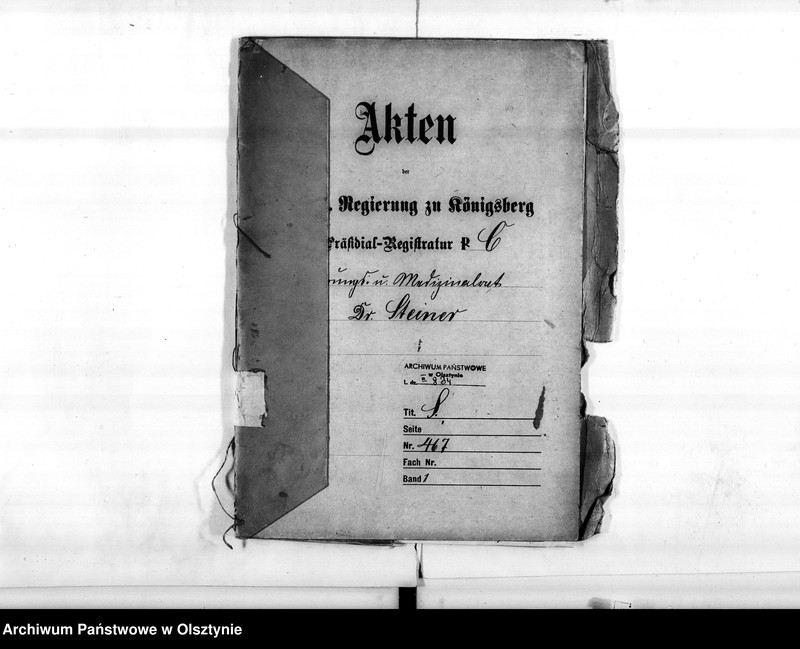 Akten
der
. Regierung zu Königsberg
Präsidial-Registratur P. C
rungs- u. Medizinalrat
Dr. Steiner
ARCHIWUM PAŃSTWOWE
w Olsztynie
L. dz.
Tit. S.
Seite
Nr. 467
Fach Nr.
Band 1
Archiwum Państwowe w Olsztynie